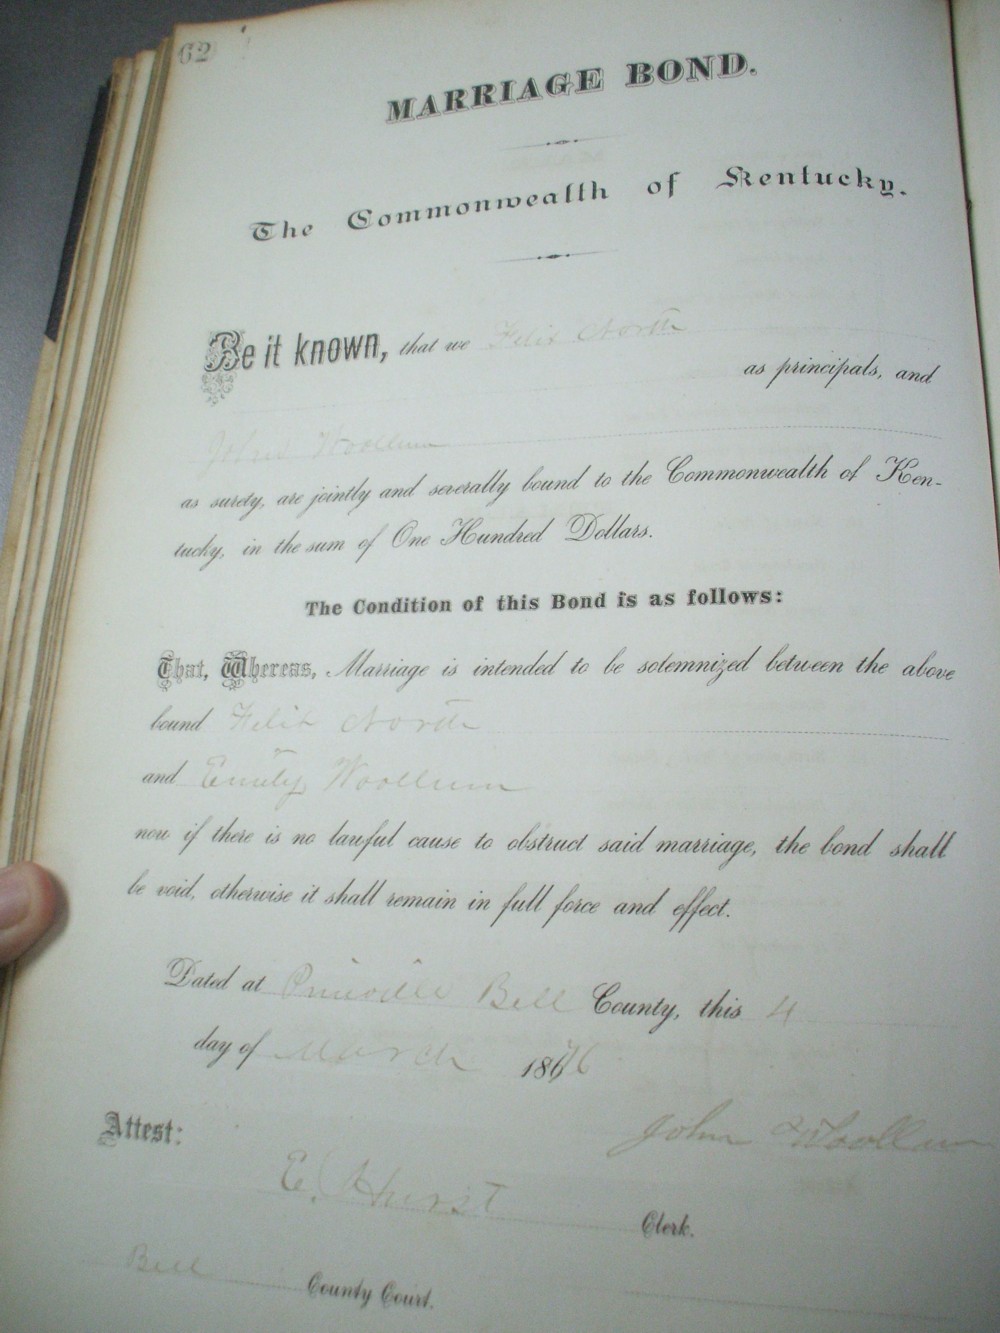 62
MARRIAGE BOND.
The Commonwealth of Kentucky.
Be it known, that we Felix North
as principals, and
John Woollum
as surety, are jointly and severally bound to the Commonwealth of Ken-
tucky, in the sum of One Hundred Dollars.
The Condition of this Bond is as follows:
That, Whereas, Marriage is intended to be solemnized between the above
bound Felix North
and Emily Woollum
now if there is no lawful cause to obstruct said marriage, the bond shall
be void, otherwise it shall remain in full force and effect.
Dated at Pineville Bell County, this 4
day of March 1876
John Woollum
Attest:
E. Hurst
Clerk.
Bell County Court.